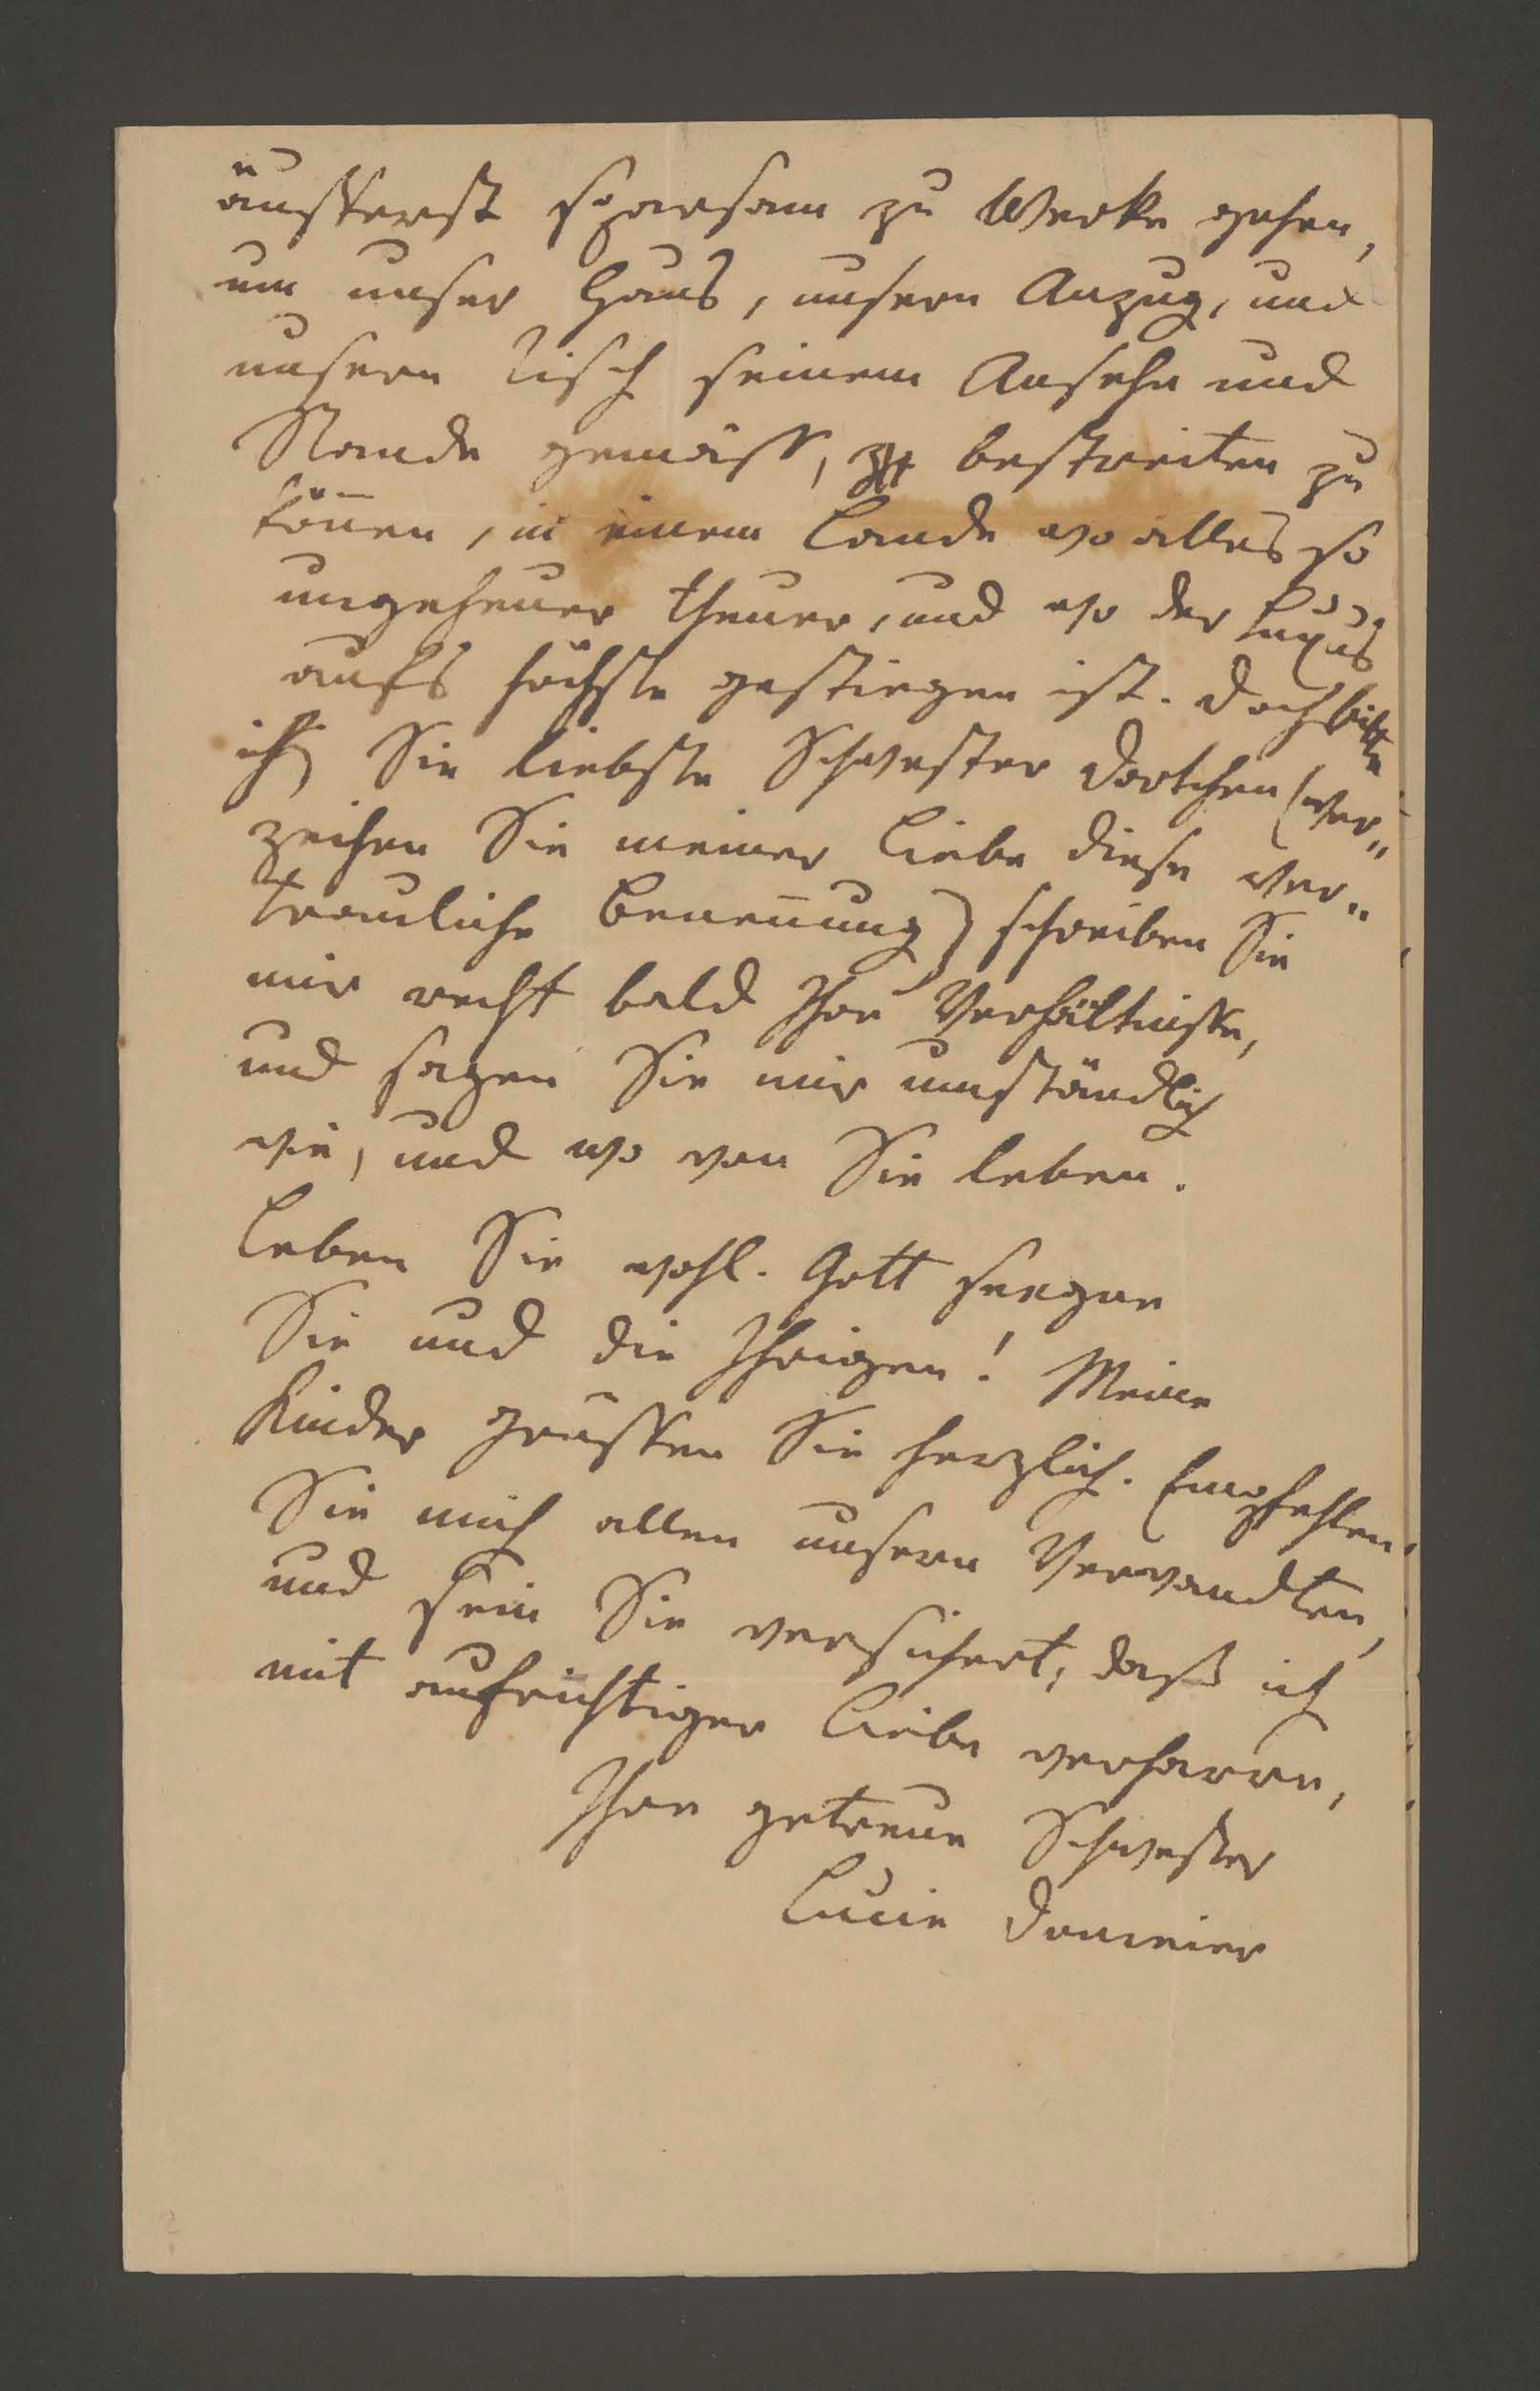 äusserst sparsam zu Werke gehen,
um unser Haus, unsern Anzug, und
unsern Tisch seinem Ansehn und
Stande gemäss, bestreiten zu
köñen, in einem Lande wo alles so
ungeheuer theuer, und wo der Luxus
aufs höchste gestiegen ist. Doch bitte
ich Sie liebste Schwester Dortchen (ver„
zeihen Sie meiner Liebe diese ver„
trauliche Beneñung) schreiben Sie
mir recht bald Ihre Verhältnisse,
und sagen Sie mir umständlich
wie, und wo von Sie leben.
Leben Sie wohl. Gott seegne
Sie und die Ihrigen! Meine
Kinder grüssen Sie herzlich. Empfehlen
Sie mich allen unsern Verwandten,
und sein Sie versichert, daß ich
mit aufrichtiger Liebe verharre,
Ihre getreue Schwester
Lucie Domeier